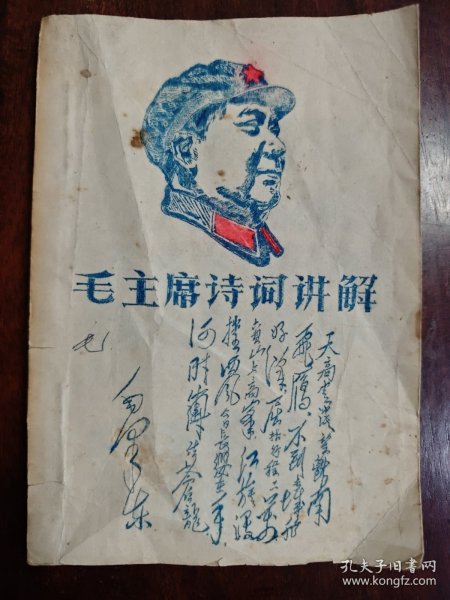 毛主席诗词讲解
天高云淡望断南
飞雁、不到长城非
好汉屈指行程二万、
六盘山上高峯 红旗漫
捲西风 今日长缨在手、
何时缚住苍龙
毛泽东
孔夫子旧书网
www.kongfz.com